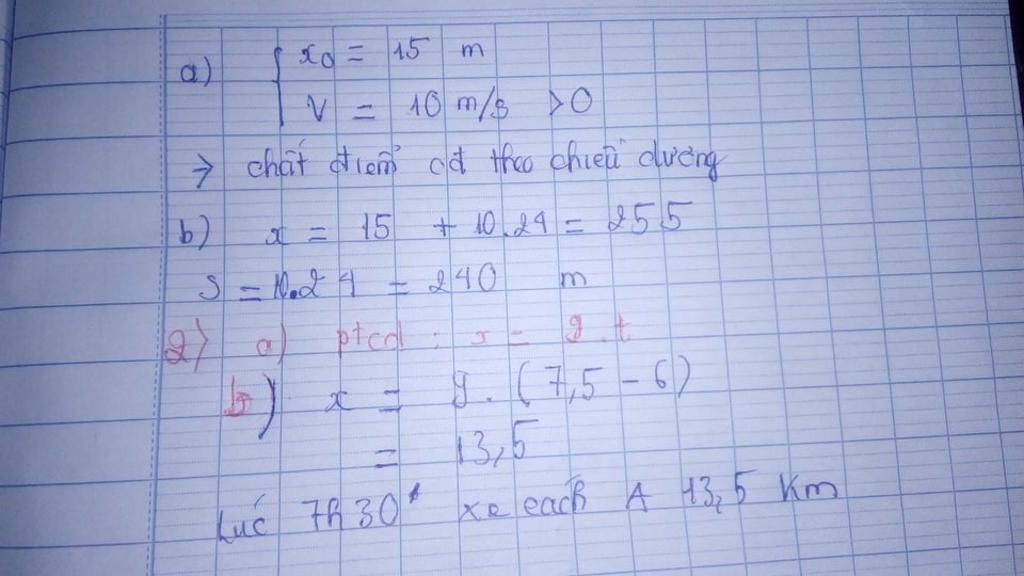 a) { x₀ = 15 m
V = 10 m/s > 0
→ chất điểm cđ theo chiều dương
b) x = 15 + 10.24 = 255
S = 10.24 = 240 m
2) a) ptcđ : x = 9.t
b) x = 9.(7,5 - 6)
= 13,5
Lúc 7h30' xe cách A 13,5 Km